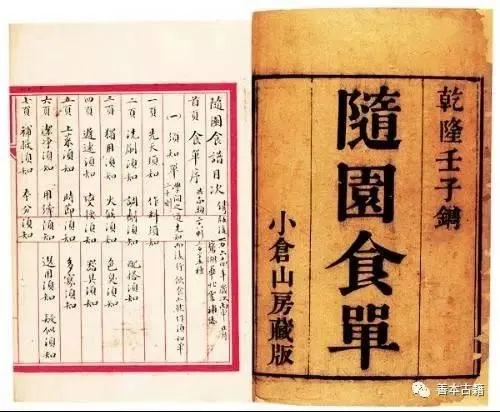 乾隆壬子鐫
隨園食單
小倉山房藏版
隨園食譜目次
首頁 食單序
(一) 須知單 學問之道先知而後行飲食亦然作須知單
一頁 先天須知 作料須知
二頁 洗刷須知 調劑須知 配搭須知
三頁 獨用須知 火候須知 色臭須知
四頁 遲速須知 變換須知 器具須知
五頁 上菜須知 時節須知 多寡須知
六頁 潔净須知 用縴須知 選用須知 疑似須知
七頁 補救須知 本分須知
善本古籍